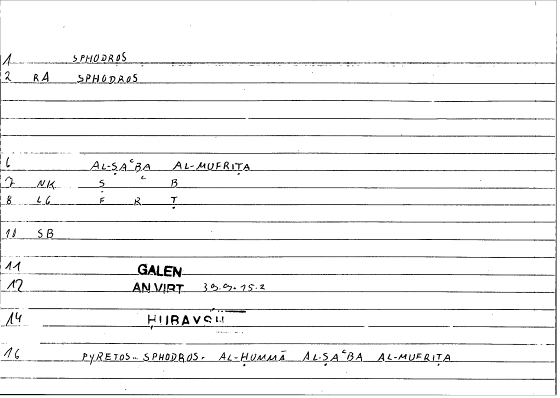 1 SPHODROS
2 RA SPHODROS
6 AL-ṢAʿBA AL-MUFRIṬA
7 NK Ṣ ʿ B
8 LG F R Ṭ
10 SB
11 GALEN
12 AN VIRT
14 ḤUBAYŠ
16 PYRETOS- SPHODROS- AL-ḤUMMĀ AL-ṢAʿBA AL-MUFRIṬA